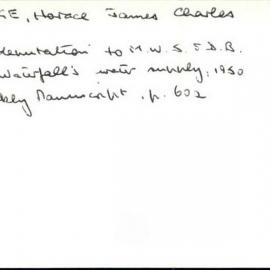 GE, Horace James Charles
deputation to M.W.S. & D.B.
Waterfall's water supply, 1950
Manuscript, p. 602